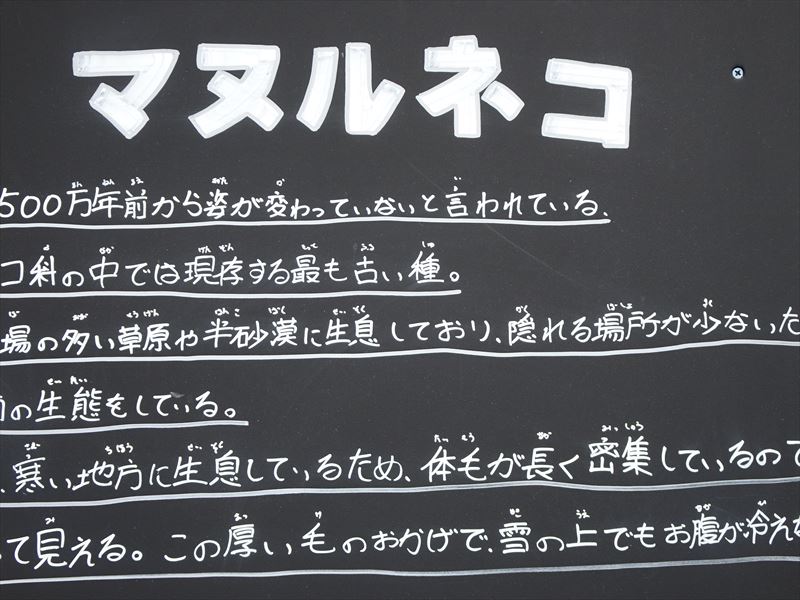 マヌルネコ
500万年前から姿が変わっていないと言われている、
コ科の中では現存する最も古い種。
場の多い草原や半砂漠に生息しており、隠れる場所が少ないた
の生態をしている。
、寒い地方に生息しているため、体毛が長く密集しているので
て見える。この厚い毛のおかげで、雪の上でもお腹が冷えな